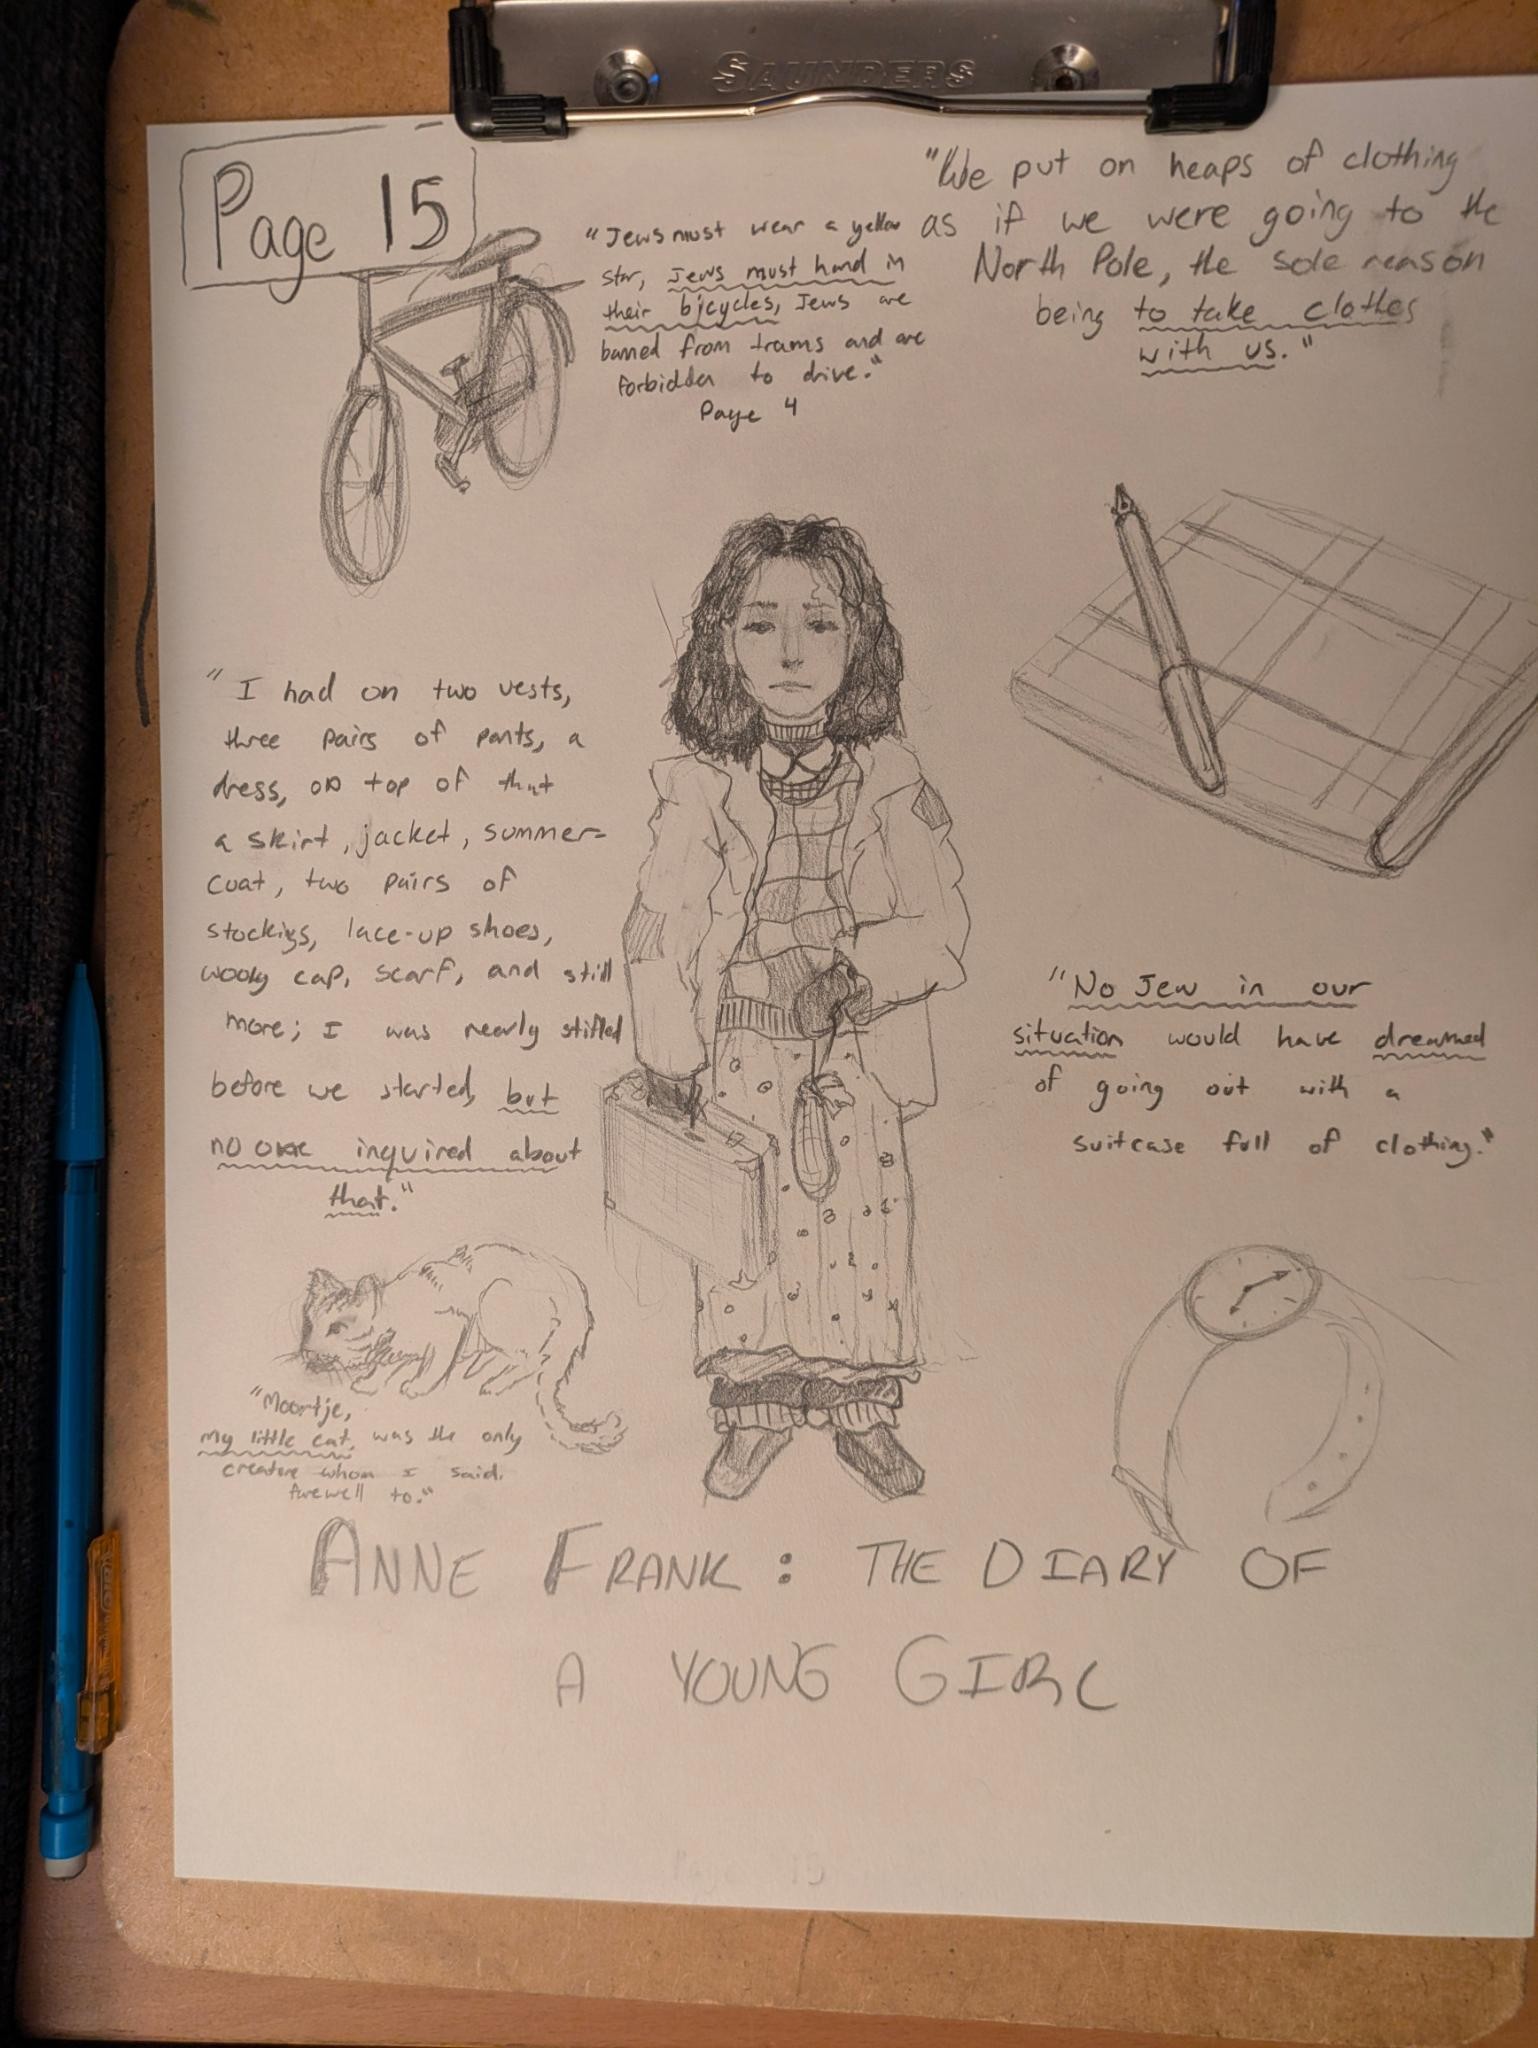 SAUNDERS
Page 15
"Jews must wear a yellow
star, Jews must hand in
their bicycles, Jews are
banned from trams and are
forbidden to drive."
Page 4
"We put on heaps of clothing
as if we were going to the
North Pole, the sole reason
being to take clothes
with us."
"I had on two vests,
three pairs of pants, a
dress, on top of that
a skirt, jacket, summer-
coat, two pairs of
stockigs, lace-up shoes,
wooly cap, scarf, and still
more; I was nearly stifled
before we started, but
no one inquired about
that."
"No Jew in our
situation would have dreamed
of going out with a
suitcase full of clothing."
"Moortje,
my little cat, was the only
creature whom I said
farewell to."
ANNE FRANK: THE DIARY OF
A YOUNG GIRL
Page 15